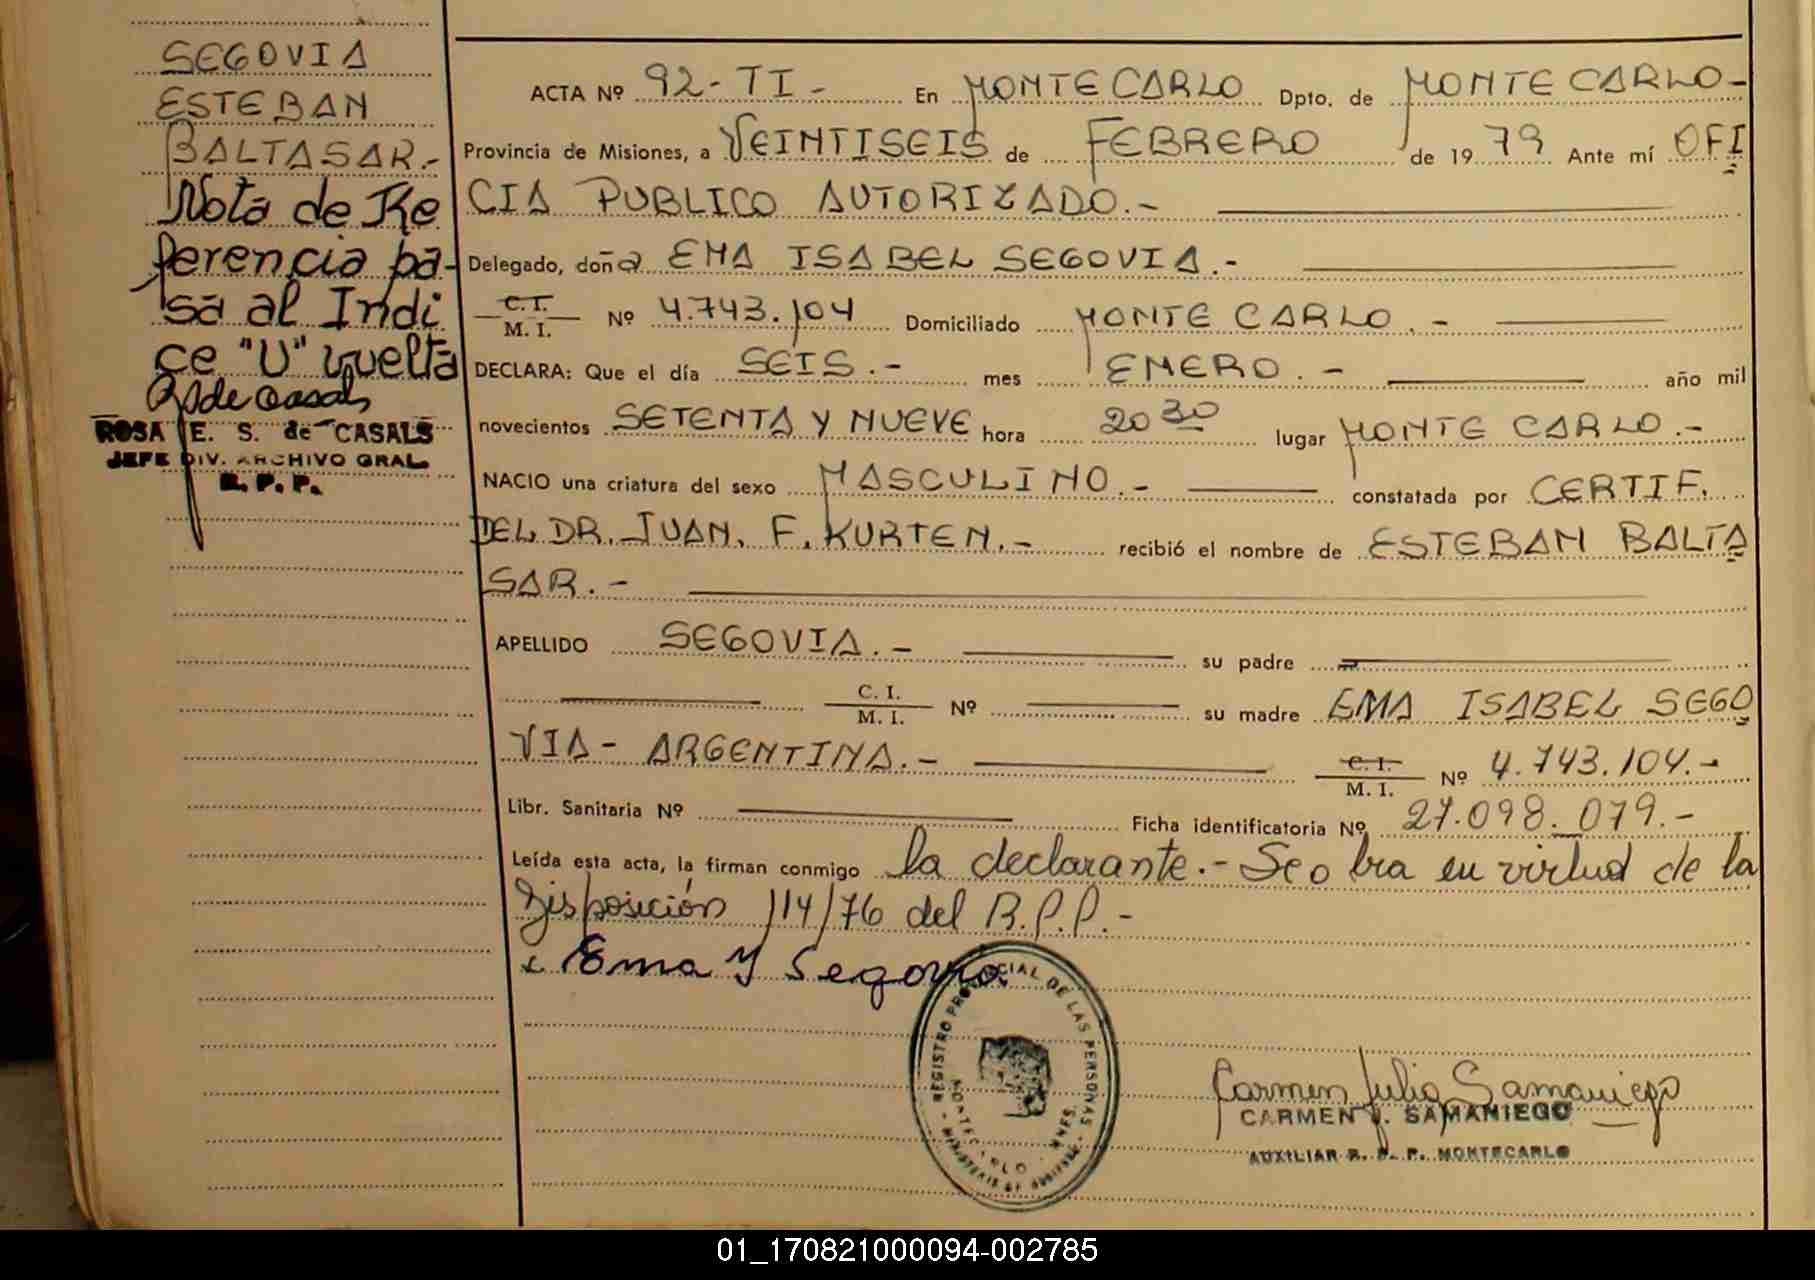 SEGOVIA
ESTEBAN
BALTASAR.-
Nota de Re
ferencia pa-
sa al Indi
ce "U" vuelta
R de Casals
ROSA E. S. de CASALS
JEFE DIV. ARCHIVO GRAL.
R. P. P.
ACTA Nº 92-TI- En MONTECARLO Dpto. de MONTECARLO-
Provincia de Misiones, a VEINTISEIS de FEBRERO de 1979 Ante mí OFI
CIA PUBLICO AUTORIZADO.-
Delegado, doña EMA ISABEL SEGOVIA.-
C.I.
M. I. Nº 4.743.104 Domiciliado MONTE CARLO.-
DECLARA: Que el día SEIS.- mes ENERO.- año mil
novecientos SETENTA Y NUEVE hora 20 30 lugar MONTE CARLO.-
NACIO una criatura del sexo MASCULINO.- constatada por CERTIF.
DEL DR. JUAN. F. KURTEN.- recibió el nombre de ESTEBAN BALTA
SAR.-
APELLIDO SEGOVIA.- su padre
C. I.
M. I. Nº su madre EMA ISABEL SEGO
VIA- ARGENTINA.- C. I.
M. I. Nº 4.743.104.-
Libr. Sanitaria Nº Ficha identificatoria Nº 27.098.079.-
Leída esta acta, la firman conmigo la declarante.- Se o bra en virtud de la
Disposición 114/76 del R.P.P.-
x Ema Y Segovia
REGISTRO PROVINCIAL DE LAS PERSONAS
MONTECARLO - MNES.
Carmen Julia Samaniego
CARMEN J. SAMANIEGO
AUXILIAR R. P. P. MONTECARLO
01_170821000094-002785